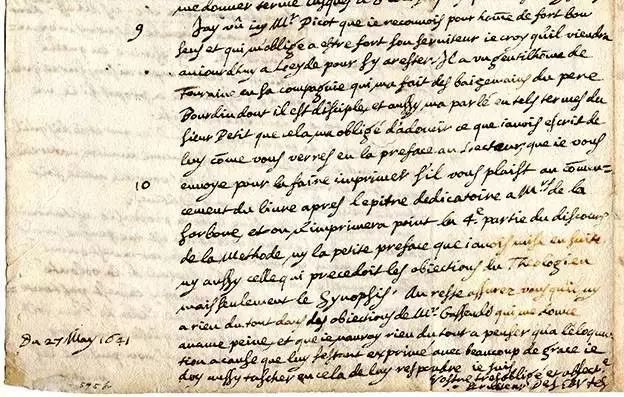 me donner terme jusques
9
J'ay vû icy Mr. Picot que ie reconnois pour hõme de fort bon
sens et qui m'oblige a estre fort son serviteur ie croy quil viendra
auiourd'huy a Leyde pour s'y arester. Il a un gentilhõme de
Touraine en sa compagnie qui m'a fait des baizemains du pere
Bourdin dont il est disciple, et aussy m'a parlé en tels termes du
sieur Petit que cela m'a obligé d'adoucir ce que i'avois escrit de
luy cõme vous verrez en la preface au Lecteur, que ie vous
10
envoye pour la faire imprimer s'il vous plaist au commen=
cement du livre apres l'epitre dedicatoire a Mrs. de la
sorbone, et on n'imprimera point la 4e. partie du discours
de la Methode ny la petite preface que i'avois mise en suite
ny aussy celle qui precedoit les obiections du Theologien
mais seulement le Synopsis. Au reste assurez vous quil ny
a rien du tout dans des obiections de Mr. Gassendi qui me donne
aucune peine, et que ie n'auray rien du tout a penser qu'a l'elocu
Du 27 May 1641
tion a cause que luy s'estant exprimé avec beaucoup de grace ie
doy aussy tascher en cela de luy respondre ie suis
Vostre tres obligé et affectñ
serviteur Descartes